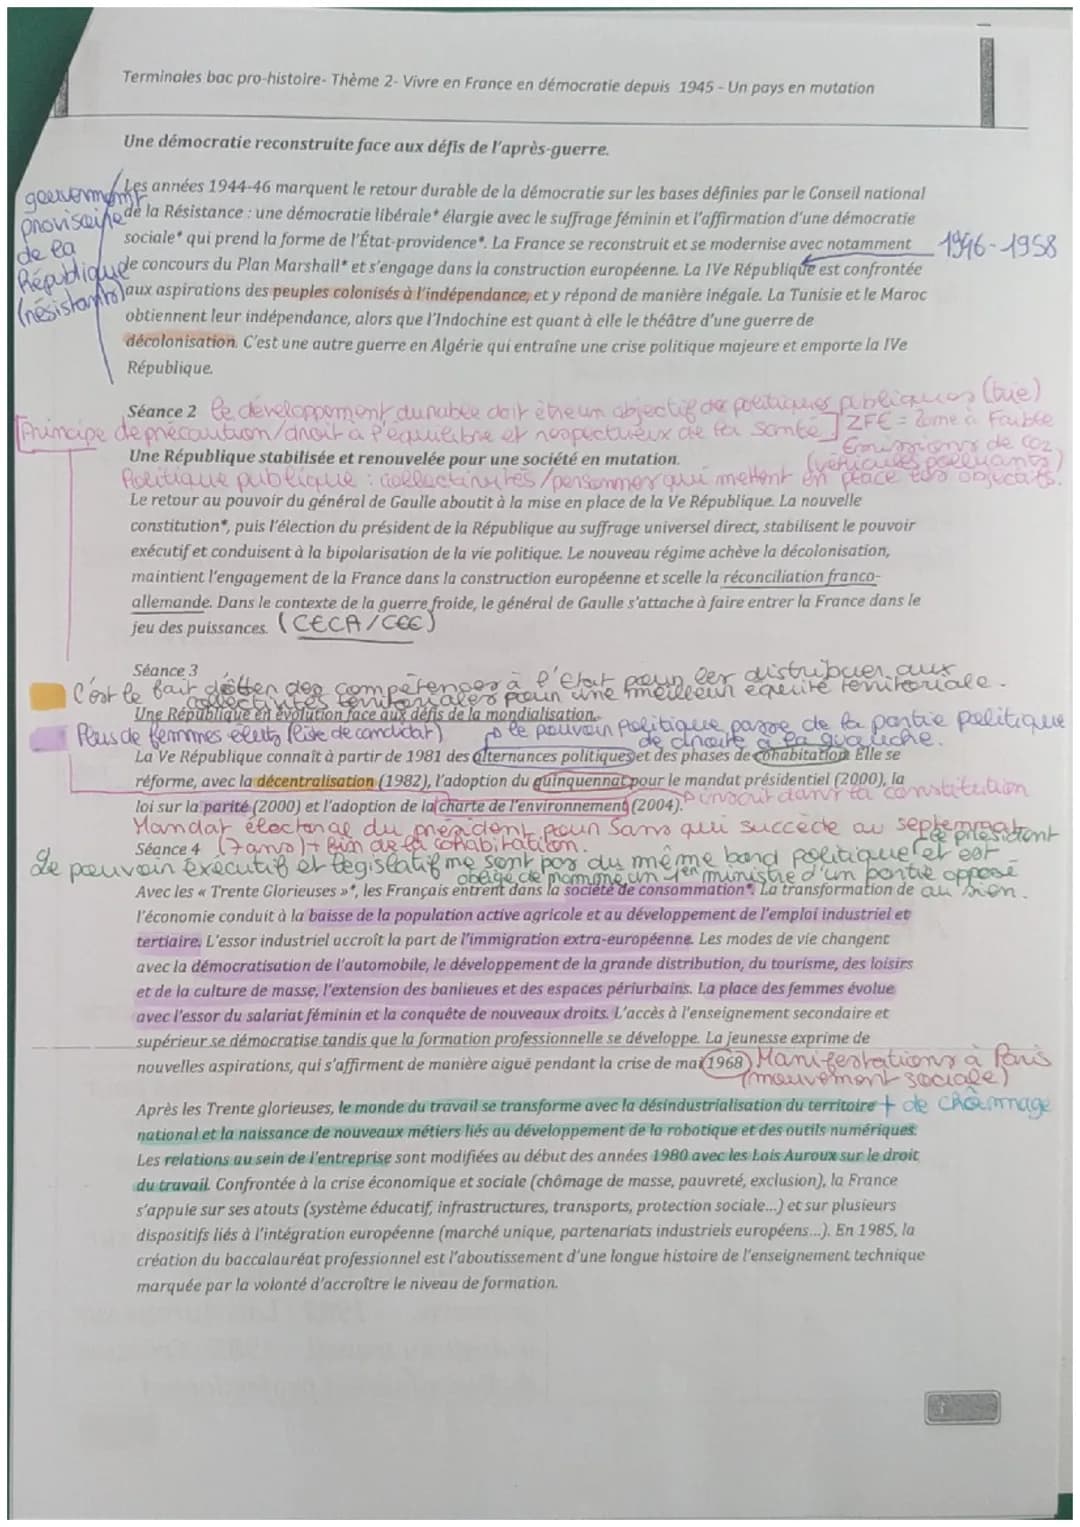 Terminales bac pro-histoire- Thème 2- Vivre en France en démocratie depuis 1945 - Un pays en mutation
Une démocratie reconstruite face aux défis de l'après-guerre.
gouvernement
provisoire
de la
République
(résistants)
Les années 1944-46 marquent le retour durable de la démocratie sur les bases définies par le Conseil national
de la Résistance : une démocratie libérale* élargie avec le suffrage féminin et l'affirmation d'une démocratie
sociale* qui prend la forme de l'État-providence*. La France se reconstruit et se modernise avec notamment
1946-1958
le concours du Plan Marshall* et s'engage dans la construction européenne. La IVe République est confrontée
aux aspirations des peuples colonisés à l'indépendance, et y répond de manière inégale. La Tunisie et le Maroc
obtiennent leur indépendance, alors que l'Indochine est quant à elle le théâtre d'une guerre de
décolonisation. C'est une autre guerre en Algérie qui entraîne une crise politique majeure et emporte la IVe
République.
Séance 2 Le développement durable doit être un objectif des politiques publiques (bie)
[Principe de précaution/droit à l'équilibre et respectueux de la santé] ZFE = Zone à Faible
Émissions de CO2
(véhicules polluants)
Une République stabilisée et renouvelée pour une société en mutation.
Politique publique : collectivités/personnes qui mettent en place les objectifs.
Le retour au pouvoir du général de Gaulle aboutit à la mise en place de la Ve République. La nouvelle
constitution*, puis l'élection du président de la République au suffrage universel direct, stabilisent le pouvoir
exécutif et conduisent à la bipolarisation de la vie politique. Le nouveau régime achève la décolonisation,
maintient l'engagement de la France dans la construction européenne et scelle la réconciliation franco-
allemande. Dans le contexte de la guerre froide, le général de Gaulle s'attache à faire entrer la France dans le
jeu des puissances. (CECA/CEE)
Séance 3
C'est le fait d'ôter des compétences à l'état pour les distribuer aux
collectivités territoriales pour une meilleur équité territoriale.
Une République en évolution face aux défis de la mondialisation.
Plus de femmes élues (liste de candidat)
le pouvoir politique passe de la partie politique
de droite à la gauche.
La Ve République connaît à partir de 1981 des alternances politiques et des phases de cohabitation. Elle se
réforme, avec la décentralisation (1982), l'adoption du quinquennat pour le mandat présidentiel (2000), la
loi sur la parité (2000) et l'adoption de la charte de l'environnement (2004). inscrit dans la constitution
Mandat électoral du président pour 5ans qui succède au septennat
Séance 4 (7ans) + fin de la cohabitation.
Le président
Le pouvoir éxécutif et législatif ne sont pas du même bord politique et est
obligé de nommé un 1er ministre d'un partie opposé
au sien.
Avec les « Trente Glorieuses »*, les Français entrent dans la société de consommation*. La transformation de
l'économie conduit à la baisse de la population active agricole et au développement de l'emploi industriel et
tertiaire. L'essor industriel accroît la part de l'immigration extra-européenne. Les modes de vie changent
avec la démocratisation de l'automobile, le développement de la grande distribution, du tourisme, des loisirs
et de la culture de masse, l'extension des banlieues et des espaces périurbains. La place des femmes évolue
avec l'essor du salariat féminin et la conquête de nouveaux droits. L'accès à l'enseignement secondaire et
supérieur se démocratise tandis que la formation professionnelle se développe. La jeunesse exprime de
nouvelles aspirations, qui s'affirment de manière aiguë pendant la crise de mai 1968 Manifestations à Paris
(mouvement sociale)
Après les Trente glorieuses, le monde du travail se transforme avec la désindustrialisation du territoire + de chômmage
national et la naissance de nouveaux métiers liés au développement de la robotique et des outils numériques.
Les relations au sein de l'entreprise sont modifiées au début des années 1980 avec les Lois Auroux sur le droit
du travail. Confrontée à la crise économique et sociale (chômage de masse, pauvreté, exclusion), la France
s'appuie sur ses atouts (système éducatif, infrastructures, transports, protection sociale...) et sur plusieurs
dispositifs liés à l'intégration européenne (marché unique, partenariats industriels européens...). En 1985, la
création du baccalauréat professionnel est l'aboutissement d'une longue histoire de l'enseignement technique
marquée par la volonté d'accroître le niveau de formation.